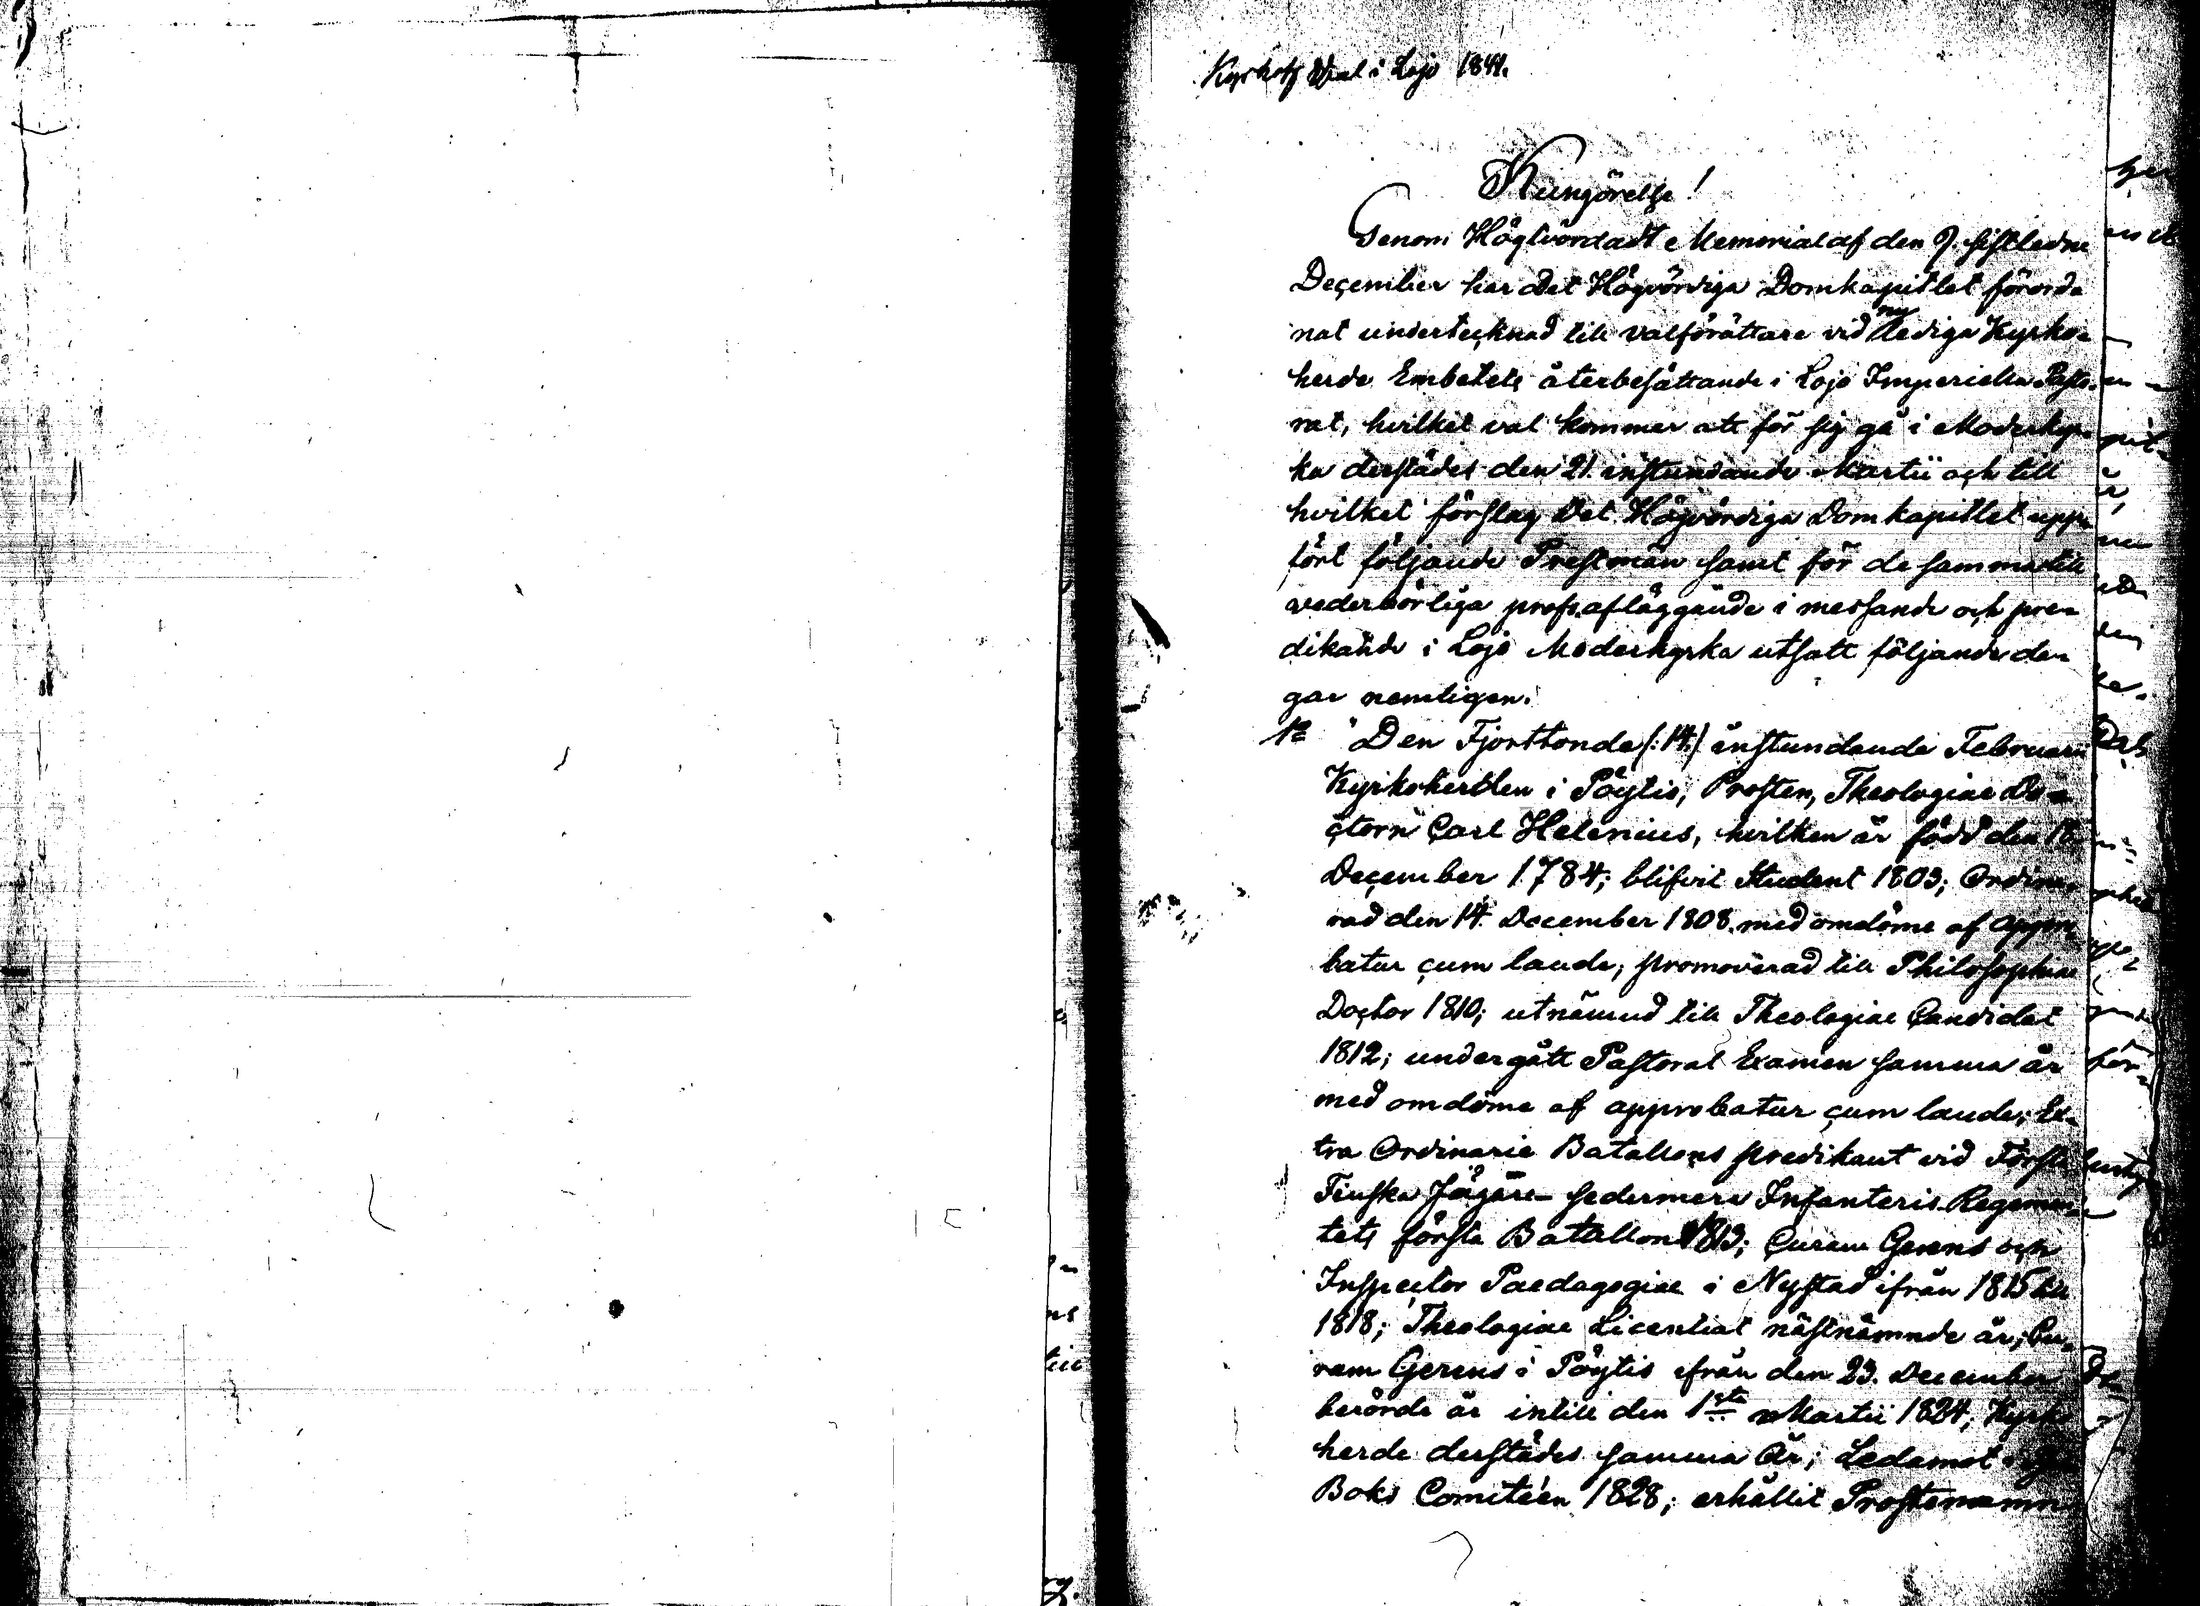 Kyrkohs Val i Lojo 1841.
Kungörelse!
Genom Högtvördadt Memorial af den 9. sistledne
December har Det Högvördiga Domkapitlet förord-
nat undertecknad till valförättare vid ny lediga Kyrko-
herde Embetets återbesättande i Lojo Imperiella Pasto-
rat, hvilket val kommer att för sig gå i Moderkyr-
ka derstädes den 21. instundande Martii och till
hvilket förslag Det Högvördiga Domkapitlet upp-
fört följande Prestmän samt för de samma till
vederbörliga profs afläggande i messande och pre-
dikande i Lojo Moderkyrka utsatt följande da-
gar nemligen:
1o Den Fjorttonde /: 14 :/ instundande Februarii
Kyrkoherden i Pöytis, Prosten, Theologiae Do-
ctorn Carl Helenius, hvilken är född den 18
December 1784; blifvit Student 1803; Ordine-
rad den 14. December 1808. med omdöme af appro-
batur cum laude; promoverad till Philosophiae
Doctor 1810; utnämnd till Theologiae Candidat
1812; undergått Pastoral Examen samma år
med omdöme af approbatur cum laude; Ex-
tra Ordinarie Batallons predikant vid Första
Finska Jägare- sedermera Infanteris Regemen-
tets första Batallon 1813; Curam Gerens och
Inspector Paedagogiae i Nystad ifrån 1815 till
1818; Theologiae Licentiat nästnämnde år; Cu-
ram Gerens i Pöytis ifrån den 23. December
berörde år intill den 1sta Martii 1824; Kyrko
herde derstädes samma År; Ledamot i
Boks Comitéen 1828; erhållit Prostenamn